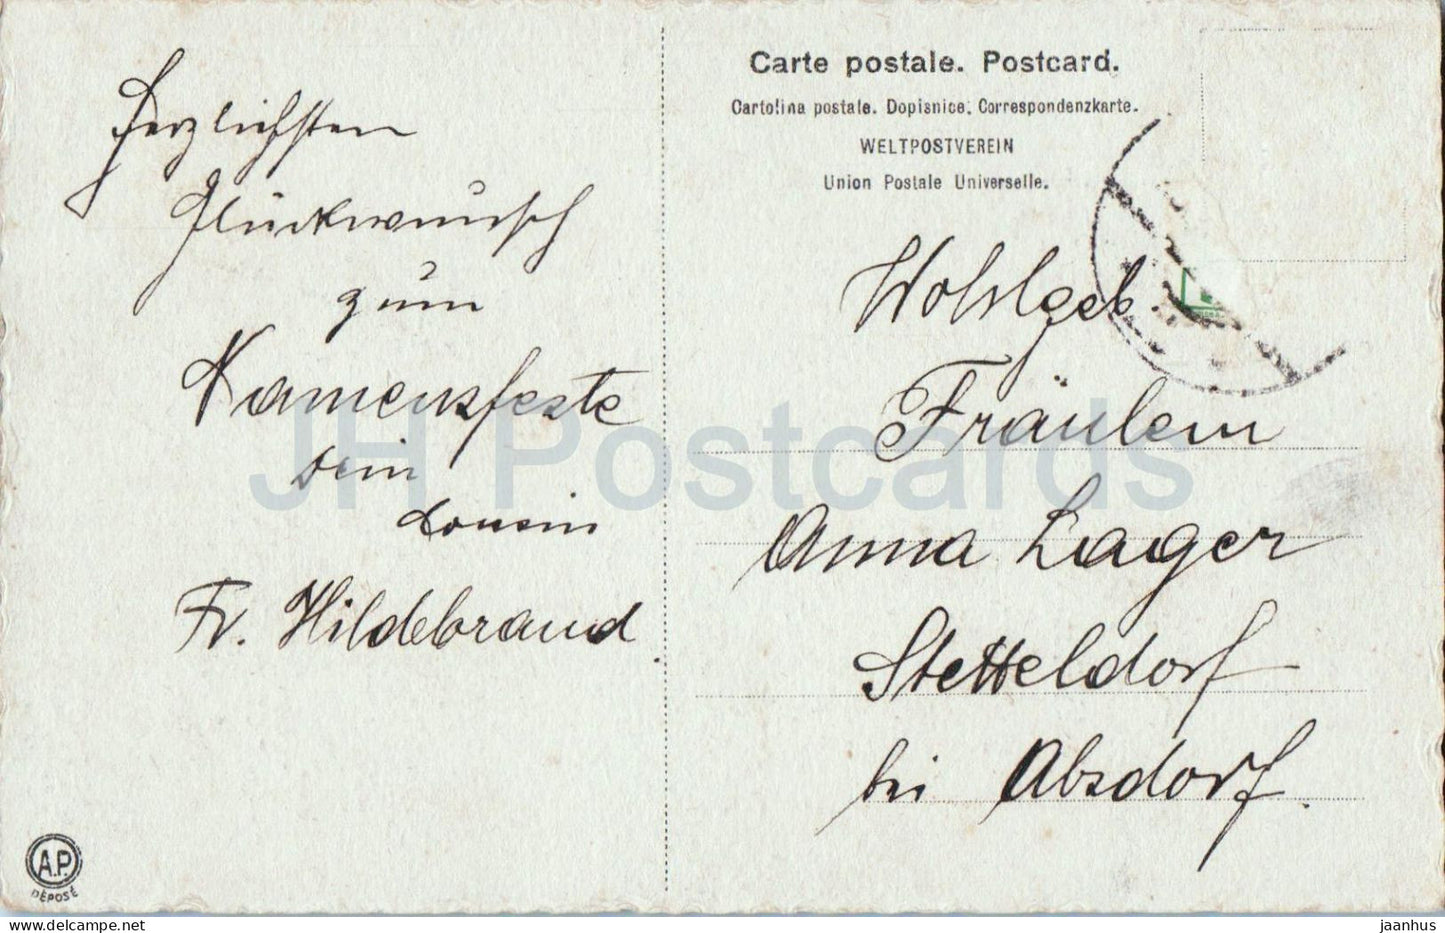 Herzlichsten
Glückwunsch
zum
Namensfeste
dein
Cousin
Fr. Hildebrand.
A.P.
DÉPOSÉ
Carte postale. Postcard.
Cartolina postale. Dopisnice. Correspondenzkarte.
WELTPOSTVEREIN
Union Postale Universelle.
Wohlgeb.
Fräulein
Anna Lager
Stetteldorf
bei Absdorf.
JH Postcards
www.delcampe.net
jaanhus